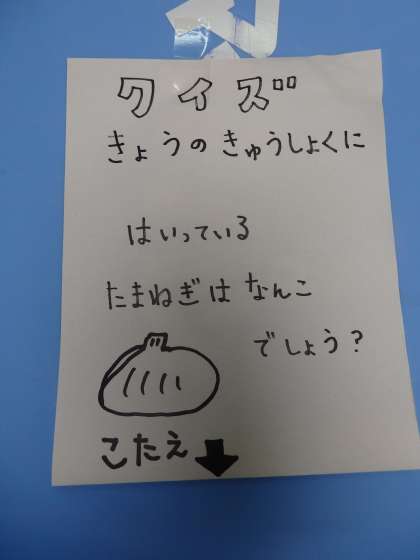 クイズ
きょうのきゅうしょくに
はいっている
たまねぎはなんこ
でしょう?
こたえ